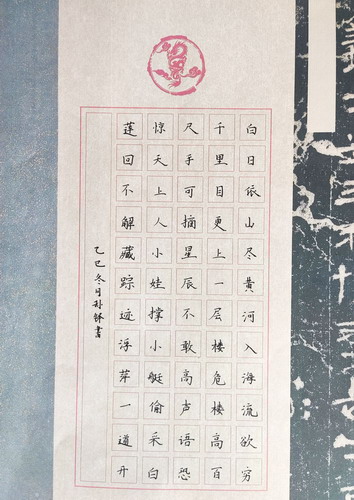 白日依山尽黄河入海流欲穷
千里目更上一层楼危楼高百
尺手可摘星辰不敢高声语恐
惊天上人小娃撑小艇偷采白
莲回不解藏踪迹浮萍一道开
乙巳冬月孙書